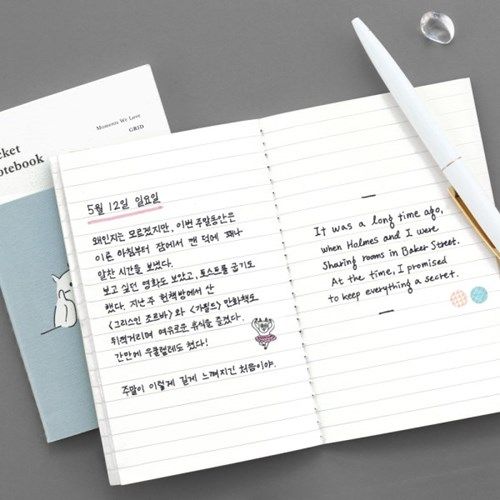 Moments We Love
GRID
cket
otebook
5월 12일 일요일
왜인지는 모르겠지만, 이번 주말동안은
이른 아침부터 잠에서 깬 덕에 꽤나
알찬 시간을 보냈다.
보고 싶던 영화도 보았고, 토스트를 굽기도
했다. 지난주 헌책방에서 산
<그리스인 조르바>와 <가필드> 만화책도
뒤적거리며 여유로운 휴식을 즐겼다.
간만에 우쿨렐레도 쳤다!
주말이 이렇게 길게 느껴지긴 처음이야.
It was a long time ago,
when Holmes and I were
Sharing rooms in Baker Street.
At the time, I promised
to keep everything a secret.